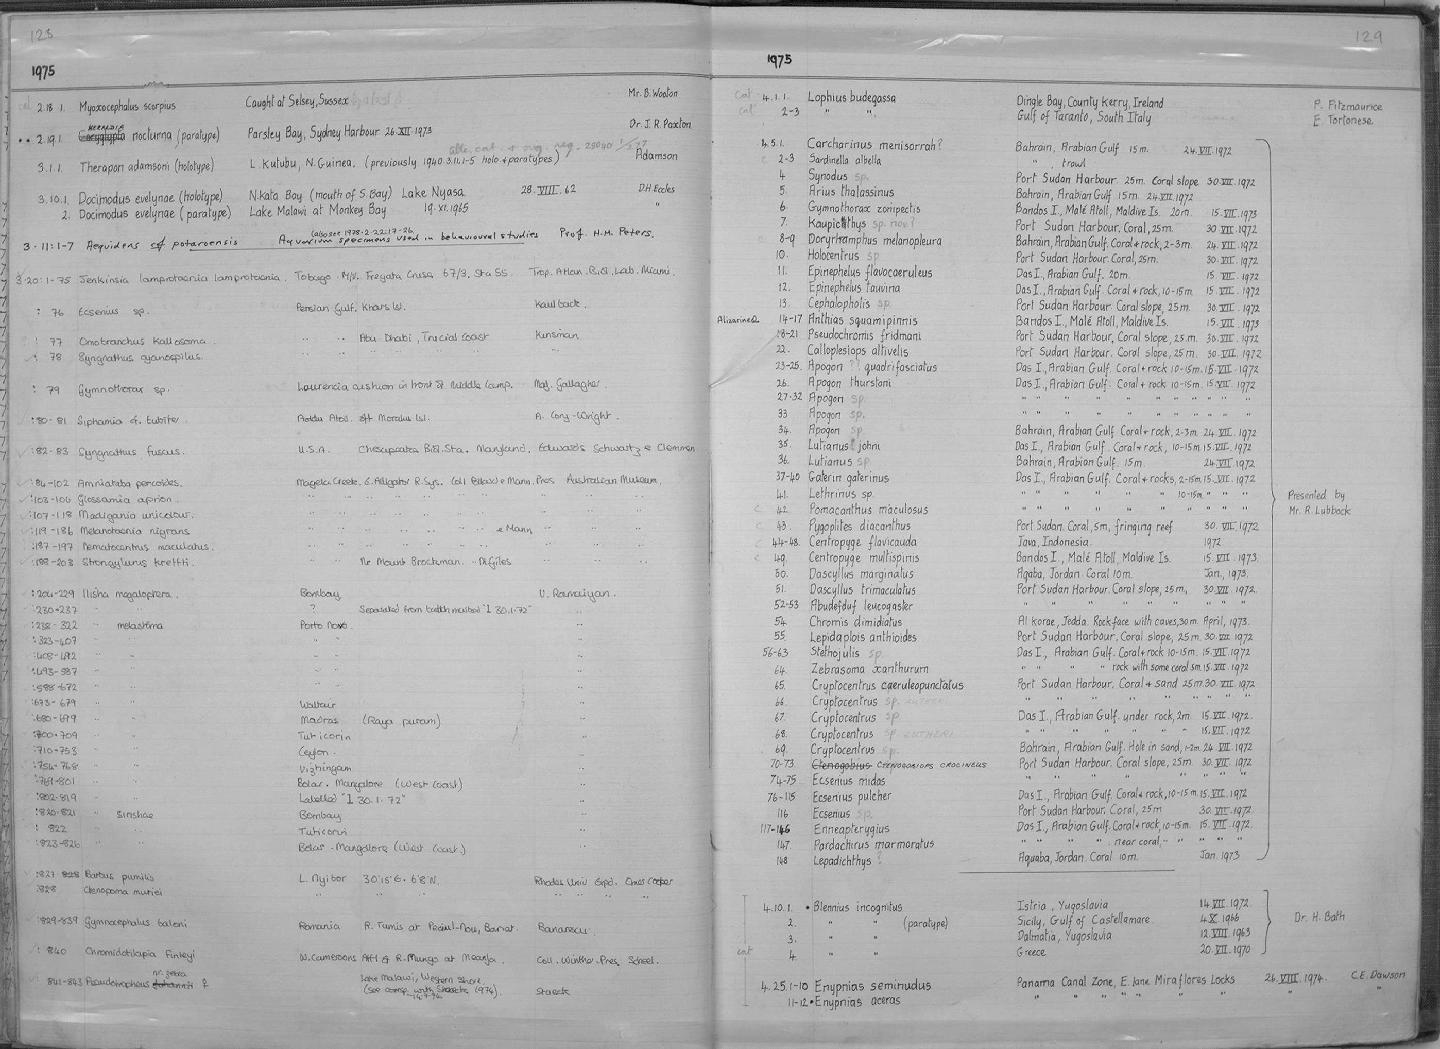 123
1975
2.18.1. Myoxocephalus scorpius Caught at Selsey, Sussex Mr. B. Wooton
2.19.1. HERALDIA nocturna (paratype) Parsley Bay, Sydney Harbour 26.XII.1973 Dr. J. R. Paxton
3.1.1. Therapon adamsoni (holotype) L. Kutubu, N. Guinea. (previously 1940.3.11.1-5 holo. + paratypes) Adamson
3.10.1. Docimodus evelynae (holotype) N.kata Bay (mouth of S. Bay) Lake Nyasa 28.VIII.62 D.H. Eccles
2. Docimodus evelynae (paratype) Lake Malawi at Monkey Bay 19.XI.1965 "
(also see 1978.2.22.17-26
3.11:1-7 Aequidens cf potaroensis Aquarium specimens used in behavioural studies Prof. H.M. Peters.
3.20:1-75 Jenkinsia lamprotaenia lamprotaenia. Tobago. M/V. Fregata Cruise 67/3, Sta 55. Trop. Atlan. Biol. Lab. Miami.
: 76 Ecsenius sp. Persian Gulf, Khars Isl. Kaulback.
: 77 Omobranchus Kallosoma. " " Abu Dhabi, Trucial Coast Kinsman.
: 78 Syngnathus cyanospilus. " " " " " "
: 79 Gymnothorax sp. Laurencia cushion in front of Middle Camp. Maj. Gallagher.
:80-81 Siphamia cf. tubifer Addu Atoll. off Moralus Isl. A. Cory-Wright.
:82-83 Syngnathus fuscus. U.S.A. Chesapeake Biol. Sta. Maryland. Edwards Schwartz & Clemmen
:84-102 Amniataba percoides. Magela Creek. E. Alligator R. Sys. Coll Pollard & Mann. Pres Australian Museum.
:103-106 Glossamia aprion. " " " " " "
:107-118 Madigania unicolour. " " " " " "
:119-186 Melanotaenia nigrans " " " & Mann " "
:187-197 Nematocentrus maculatus. " " " " " "
:198-203 Strongylurus kreffti. Nr Mount Brockman. " " "
:204-229 Ilisha megaloptera. Bombay U. Ramaiyan.
:230-237 " " ? Separated from batch marked "I 30.1.72" "
:238-322 " melastoma Porto Novo. "
:323-407 " " "
:408-492 " " "
:493-587 " " "
:588-672 " " "
:673-679 " " Waltair "
:680-699 " " Madras (Raya puram) "
:700-709 " " Tuticorin "
:710-753 " " Ceylon. "
:754-768 " " Vizhingam "
:769-801 " " Bolar. Mangalore (West Coast) "
:802-819 " " Labelled "I 30.1.72" "
:820-821 " sinshae Bombay "
: 822 Tuticorin "
:823-826 Bolar. Mangalore (West Coast.) "
:827 Barbus pumilis L. Nyibor 30°15'E. 6°8'N. Rhodes Univ Expd.
:828 Ctenopoma muriei " " " "
:829-839 Gymnocephalus baloni Romania R. Timis at Banat. Banarescu.
: 840 Chromidotilapia Finleyi W. Cameroons Afl of R. Mungo at Meanja. Coll. Winther. Pres. Scheel.
841-843 Pseudotropheus nr. zebra ♀ Lake Malawi, Western Shore. Staeck
129
1975
4.1.1. Lophius budegassa Dingle Bay, County Kerry, Ireland P. Fitzmaurice
2-3 " " Gulf of Taranto, South Italy E. Tortonese.
4.5.1. Carcharinus menisorrah? Bahrain, Arabian Gulf 15m. 24.VII.1972
2-3 Sardinella albella " " trawl
4 Synodus sp. Port Sudan Harbour. 25m. Coral slope 30.VII.1972
5. Arius thalassinus Bahrain, Arabian Gulf 15m. 24.VII.1972
6. Gymnothorax zonipectis Bandos I., Malé Atoll, Maldive Is. 20m. 15.VII.1973
7. Kaupichthys sp. nov? Port Sudan Harbour. Coral, 25m. 30.VII.1972
8-9 Doryrhamphus melanopleura Bahrain, Arabian Gulf. Coral + rock, 2-3m. 24.VII.1972
10. Holocentrus sp Port Sudan Harbour. Coral, 25m. 30.VII.1972
11. Epinephelus flavocaeruleus Das I., Arabian Gulf. 20m. 15.VII.1972
12. Epinephelus tauvina Das I., Arabian Gulf. Coral + rock, 10-15m. 15.VII.1972
13. Cephalopholis sp. Port Sudan Harbour. Coral slope, 25m. 30.VII.1972
Alizarined 14-17 Anthias squamipinnis Bandos I., Malé Atoll, Maldive Is. 15.VII.1973
18-21 Pseudochromis fridmani Port Sudan Harbour, Coral slope, 25m. 30.VII.1972
22. Calloplesiops altivelis Port Sudan Harbour. Coral slope, 25m. 30.VII.1972
23-25. Apogon ? quadrifasciatus Das I., Arabian Gulf. Coral + rock 10-15m. 15.VII.1972
26. Apogon thurstoni Das I., Arabian Gulf. Coral + rock 10-15m. 15.VII.1972
27-32 Apogon sp. " " " " " " " "
33 Apogon sp. " " " " " " " "
34. Apogon sp Bahrain, Arabian Gulf. Coral + rock, 2-3m. 24.VII.1972
35. Lutianus johni Das I., Arabian Gulf. Coral + rock, 10-15m 15.VII.1972
36. Lutianus sp. Bahrain, Arabian Gulf. 15m. 24.VII.1972
37-40 Gaterin gaterinus Das I., Arabian Gulf. Coral + rocks, 2-15m. 15.VII.1972
41. Lethrinus sp. " " " " 10-15m " " "
42. Pomacanthus maculosus " " " " " " " "
43. Pygoplites diacanthus Port Sudan. Coral, 5m, fringing reef 30.VII.1972
44-48. Centropyge flavicauda Java, Indonesia. 1972
49. Centropyge multispinis Bandos I., Malé Atoll, Maldive Is. 15.VII.1973.
50. Dascyllus marginatus Aqaba, Jordan. Coral 10m. Jan., 1973.
51. Dascyllus trimaculatus Port Sudan Harbour. Coral slope, 25m, 30.VII.1972.
52-53 Abudefduf leucogaster " " " " " " " "
54 Chromis dimidiatus Al Korae, Jedda. Rockface with caves, 30m. April, 1973.
55. Lepidaplois anthioides Port Sudan Harbour. Coral slope, 25m. 30.VII.1972
56-63 Stethojulis sp. Das I., Arabian Gulf. Coral + rock 10-15m. 15.VII.1972
64. Zebrasoma xanthurum " " " " rock with some coral 5m. 15.VII.1972
65. Cryptocentrus caeruleopunctatus Port Sudan Harbour. Coral + sand 25m. 30.VII.1972
66. Cryptocentrus sp. " " " " " " " "
67. Cryptocentrus sp Das I., Arabian Gulf. under rock, 2m. 15.VII.1972.
68. Cryptocentrus sp " " " " " 15.VII.1972.
69. Cryptocentrus sp. Bahrain, Arabian Gulf. Hole in sand, 1-2m. 24.VII.1972
70-73 Ctenogobius CTENOGOBIOPS CROCINEUS Port Sudan Harbour. Coral slope, 25m. 30.VII.1972
74-75 Ecsenius midas " " " " " " " "
76-115 Ecsenius pulcher Das I., Arabian Gulf. Coral + rock, 10-15m. 15.VII.1972
116 Ecsenius sp. Port Sudan Harbour. Coral, 25m 30.VII.1972
117-146 Enneapterygius Das I., Arabian Gulf. Coral + rock, 10-15m. 15.VII.1972.
147. Pardachirus marmoratus " " " " near coral, " " "
148 Lepadichthys ? Aquaba, Jordan. Coral 10m. Jan. 1973
Presented by
Mr. R. Lubbock
4.10.1. Blennius incognitus Istria, Yugoslavia 14.VII.1972.
2. " " (paratype) Sicily, Gulf of Castellamare. 4.X.1966
3. " " Dalmatia, Yugoslavia 12.VIII.1963
cat 4. " " Greece 20.VII.1970
Dr. H. Bath
4.25.1-10 Enypnias seminudus Panama Canal Zone, E. lane Miraflores Locks 26.VIII.1974. C.E. Dawson
11-12 Enypnias aceras " " " " " " " "